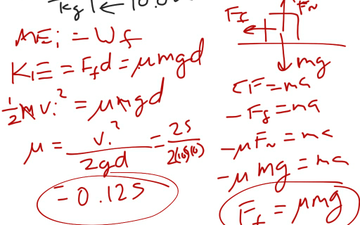 kg ← 10.0
MEi = Wf
KE = Ffd = μmgd
1/2 m vi² = μmgd
μ = vi²/2gd = 25/2(10)(10)
= 0.125
Ff FN
mg
ΣF = ma
-Ff = ma
-μFN = ma
-μmg = ma
Ff = μmg